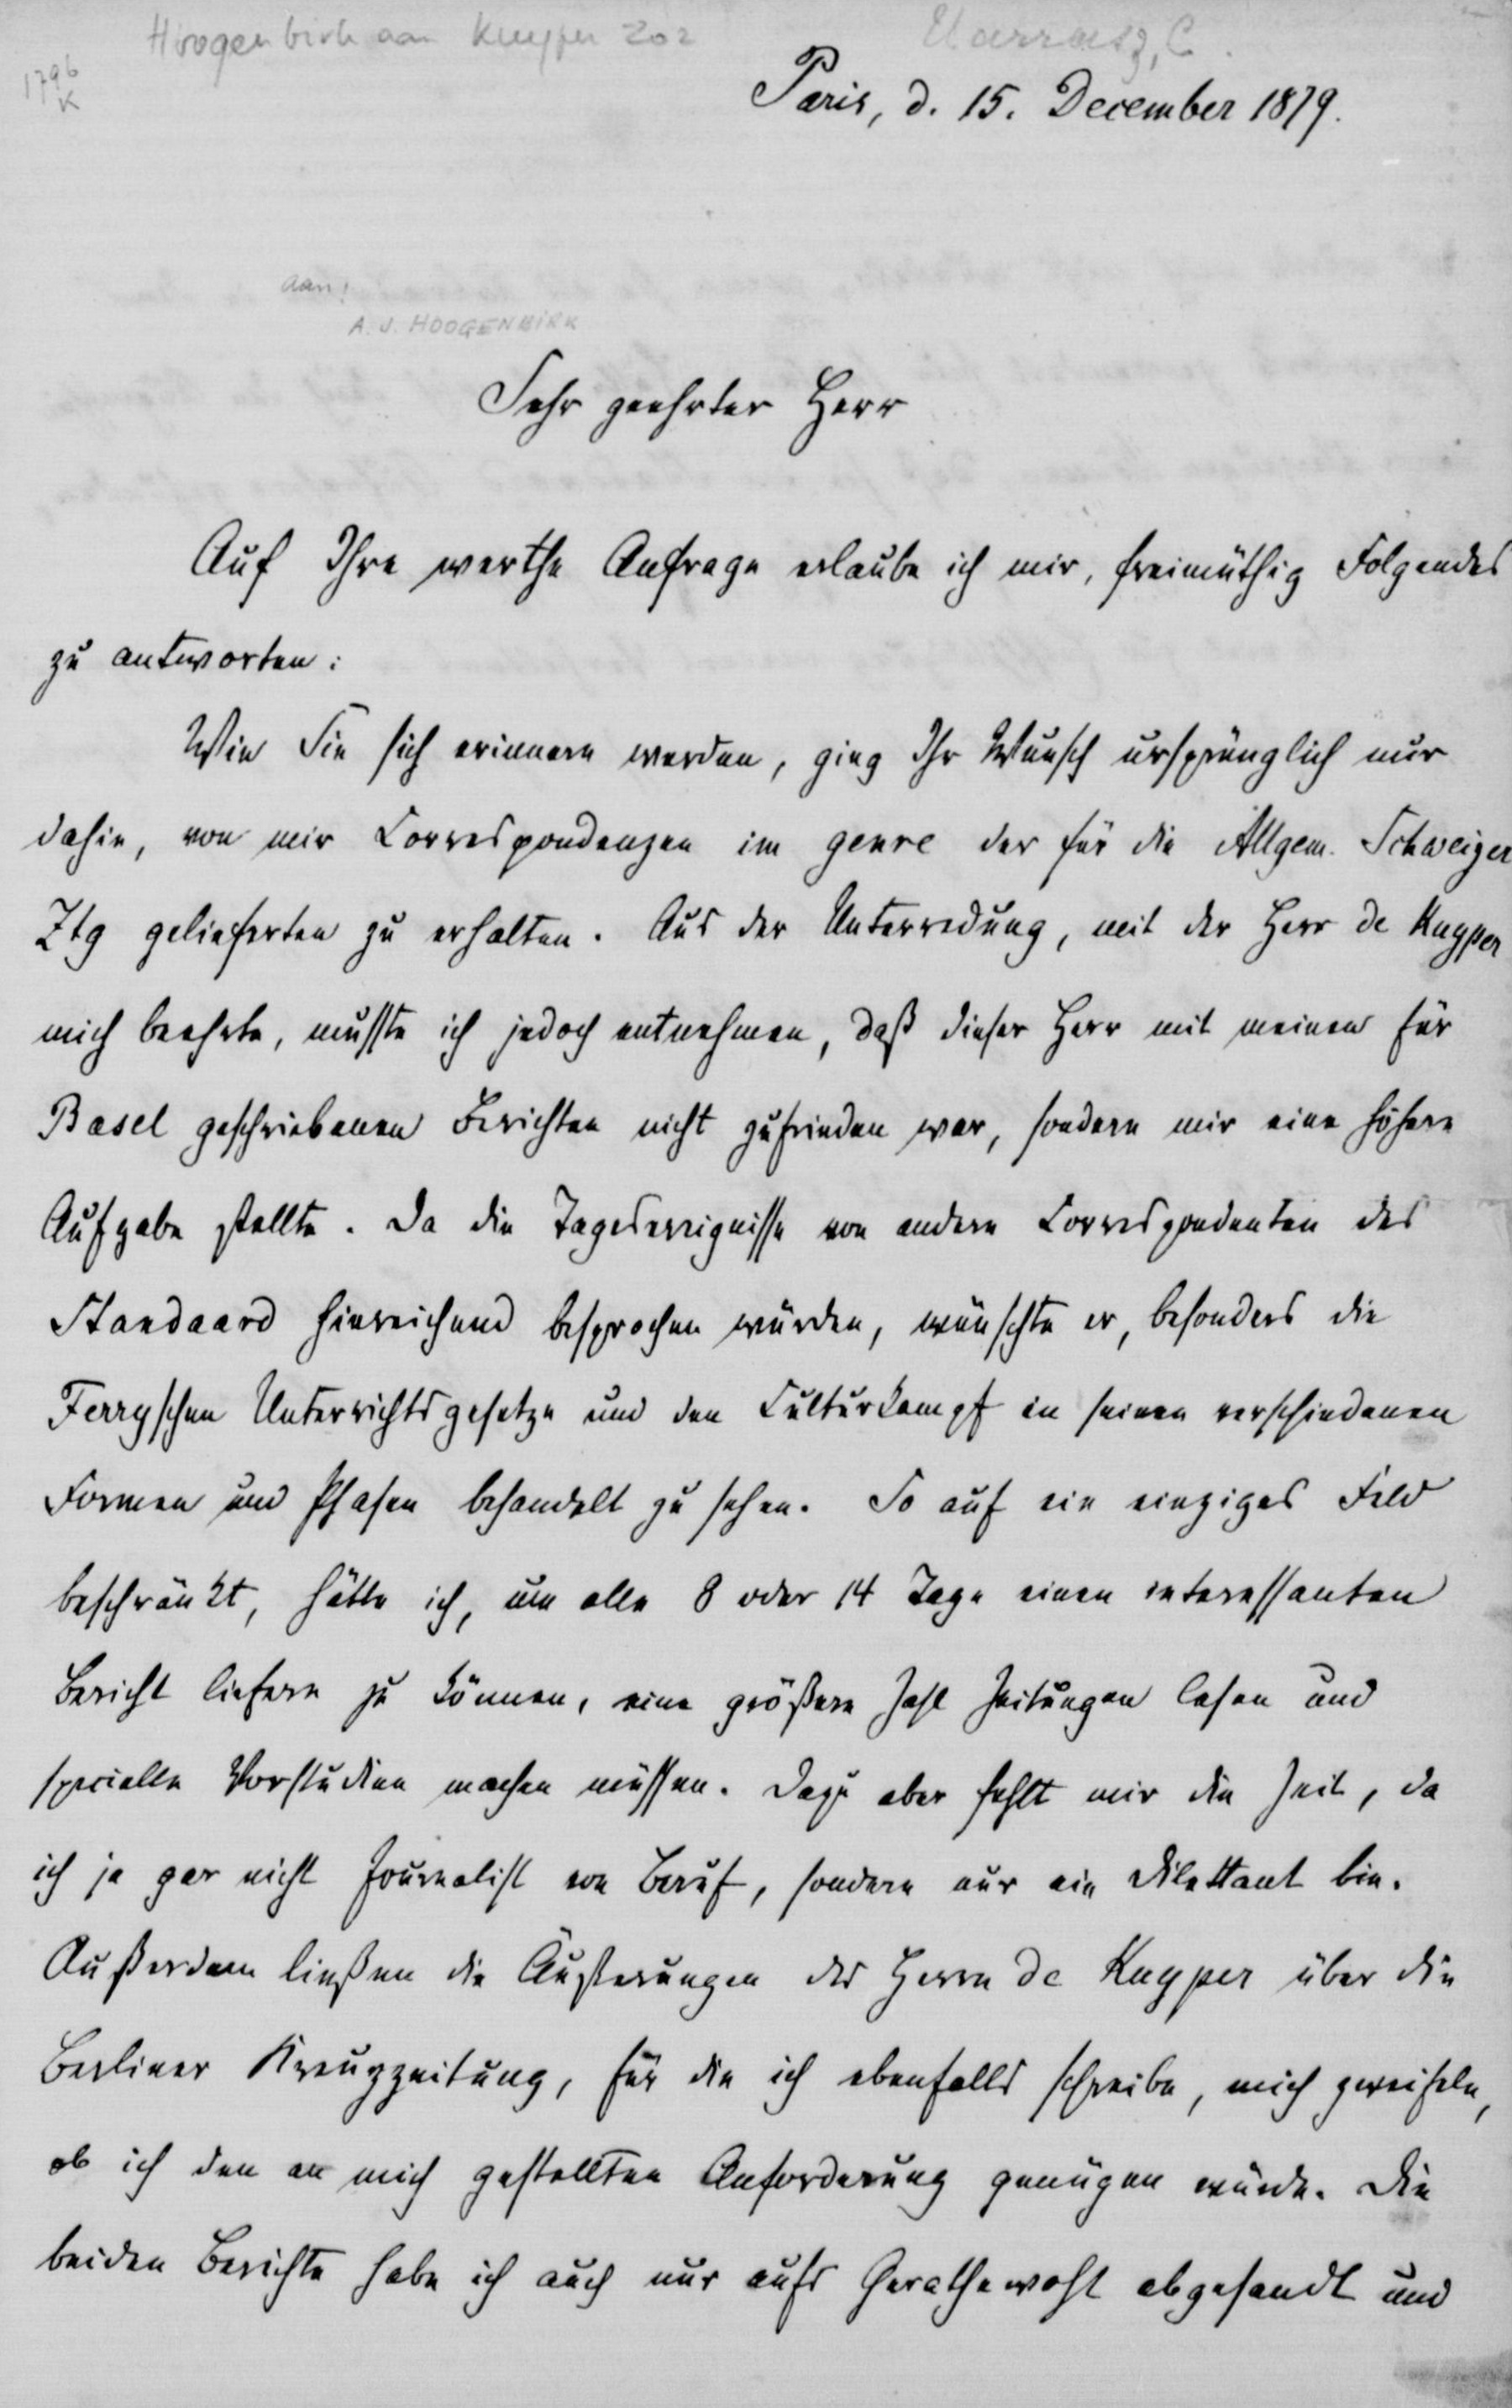 Hoogenbirk aan Kuyper 202
1796
K
Paris, d. 15. December 1879.
aan:
A. J. HOOGENBIRK
Sehr geehrter Herr
Auf Ihre werthe Anfrage erlaube ich mir, freimüthig Folgendes
zu antworten:
Wie Sie sich erinnern werden, ging Ihr Wunsch ursprünglich nur
dahin, von mir Correspondenzen im genre der für die Allgem. Schweizer
Ztg gelieferten zu erhalten. Aus der Unterredung, mit der Herr de Kuyper
mich beehrte, musste ich jedoch entnehmen, daß dieser Herr mit meinen für
Basel geschriebenen Berichten nicht zufrieden war, sondern mir eine höhere
Aufgabe stellte. Da die Tagesereignisse von andern Correspondenten des
Standaard hinreichend besprochen würden, wünschte er, besonders die
Ferryschen Unterrichtsgesetze und den Culturkampf in seinen verschiedenen
Formen und Phasen behandelt zu sehen. So auf ein einziges Feld
beschränkt, hätte ich, um alle 8 oder 14 Tage einen interessanten
Bericht liefern zu können, eine größere Zahl Zeitungen lesen und
specielle Vorstudien machen müssen. Dazu aber fehlt mir die Zeit, da
ich ja gar nicht Journalist von Beruf, sondern nur ein Dilettant bin.
Außerdem ließen die Äußerungen des Herrn de Kuyper über die
Berliner Kreuzzeitung, für die ich ebenfalls schreibe, mich zweifeln,
ob ich den an mich gestellten Anforderung genügen würde. Die
beiden Berichte habe ich auch nur aufs Gerathewohl abgesandt und